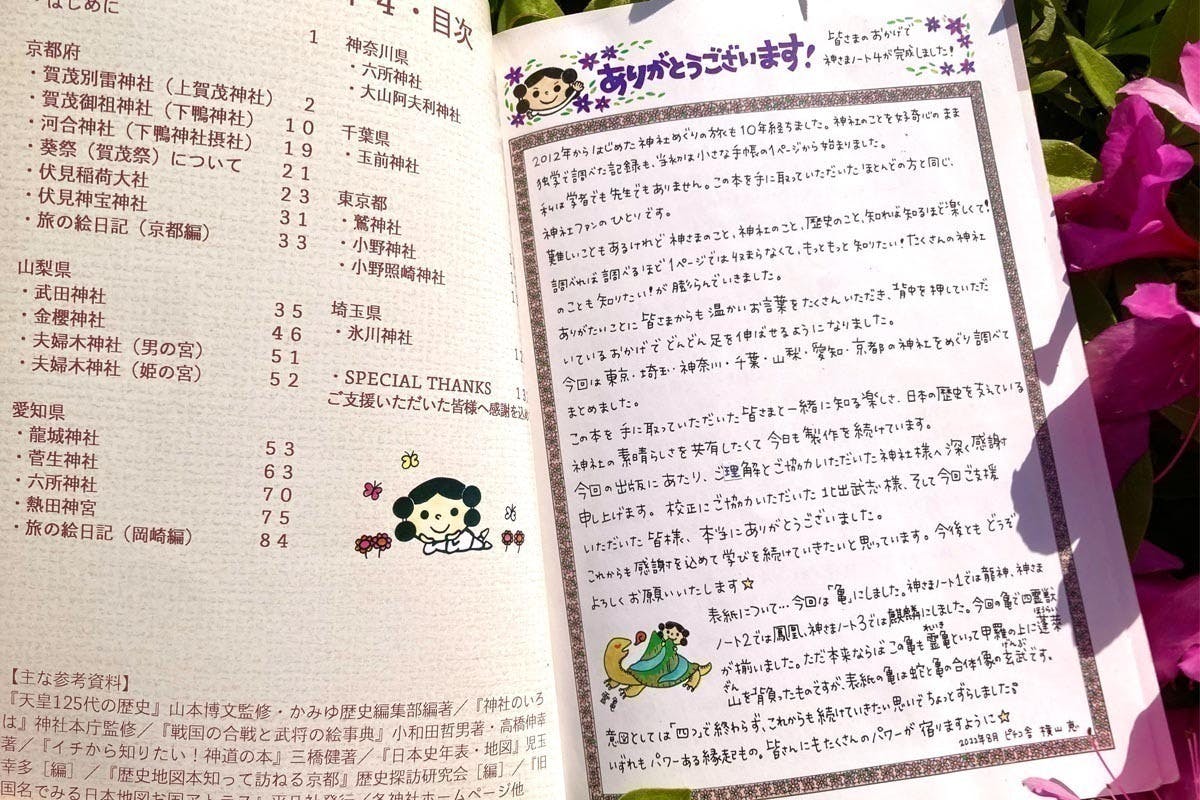 はじめに 1
4・目次
京都府
・賀茂別雷神社（上賀茂神社） 2
・賀茂御祖神社（下鴨神社） 10
・河合神社（下鴨神社摂社） 19
・葵祭（賀茂祭）について 21
・伏見稲荷大社 23
・伏見神宝神社 31
・旅の絵日記（京都編） 33
山梨県
・武田神社 35
・金櫻神社 46
・夫婦木神社（男の宮） 51
・夫婦木神社（姫の宮） 52
愛知県
・龍城神社 53
・菅生神社 63
・六所神社 70
・熱田神宮 75
・旅の絵日記（岡崎編） 84
神奈川県
・六所神社
・大山阿夫利神社
千葉県
・玉前神社
東京都
・鷲神社
・小野神社
・小野照崎神社
埼玉県
・氷川神社
・SPECIAL THANKS
ご支援いただいた皆様へ感謝を込め
【主な参考資料】
『天皇125代の歴史』山本博文監修・かみゆ歴史編集部編著／『神社のいろ
は』神社本庁監修／『戦国の合戦と武将の絵事典』小和田哲男著・高橋伸幸
著／『イチから知りたい！神道の本』三橋健著／『日本史年表・地図』児玉
幸多［編］／『歴史地図本知って訪ねる京都』歴史探訪研究会［編］／『旧
国名でみる日本地図お国アトラス』平凡社発行／各神社ホームページ他
ありがとうございます!
皆さまのおかげで
神さまノート4が完成しました!
2012年からはじめた神社めぐりの旅も10年経ちました。神社のことを好奇心のまま
独学で調べた記録も、当初は小さな手帳の1ページから始まりました。
私は学者でも先生でもありません。この本を手に取っていただいたほとんどの方と同じ、
神社ファンのひとりです。
難しいこともあるけれど 神さまのこと、神社のこと、歴史のこと、知れば知るほど楽しくて!
調べれば調べるほど1ページでは収まらなくて、もっともっと知りたい!たくさんの神社
のことも知りたい!が膨らんでいきました。
ありがたいことに皆さまからも温かいお言葉をたくさんいただき、背中を押していただ
いているおかげでどんどん足を伸ばせるようになりました。
今回は東京・埼玉・神奈川・千葉・山梨・愛知・京都の神社をめぐり調べて
まとめました。
この本を手に取っていただいた皆さまと一緒に知る楽しさ、日本の歴史を支えている
神社の素晴らしさを共有したくて今日も製作を続けています。
今回の出版にあたり、ご理解とご協力いただいた神社様へ深く感謝
申し上げます。校正にご協力いただいた北出武志様、そして今回ご支援
いただいた皆様、本当にありがとうございました。
これからも感謝を込めて学びを続けていきたいと思っています。今後ともどうぞ
よろしくお願いいたします☆
表紙について…今回は「亀」にしました。神さまノート1では龍神、神さま
ノート2では鳳凰、神さまノート3では麒麟にしました。今回の亀で四霊獣
が揃いました。ただ本来ならばこの亀も霊亀といって甲羅の上に蓬莱
山を背負ったものですが、表紙の亀は蛇と亀の合体像の玄武です。
意図としては「四つ」で終わらず、これからも続けていきたい思いでちょっとずらしました。
いずれもパワーある縁起もの。皆さんにもたくさんのパワーが宿りますように☆
2022年8月